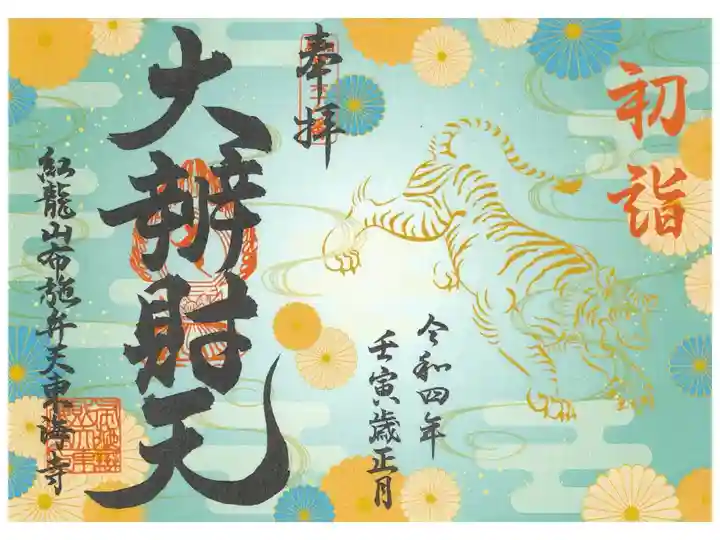 初詣
奉拝
令和四年
壬寅歳正月
大辨財天
紅龍山布施弁天東海寺